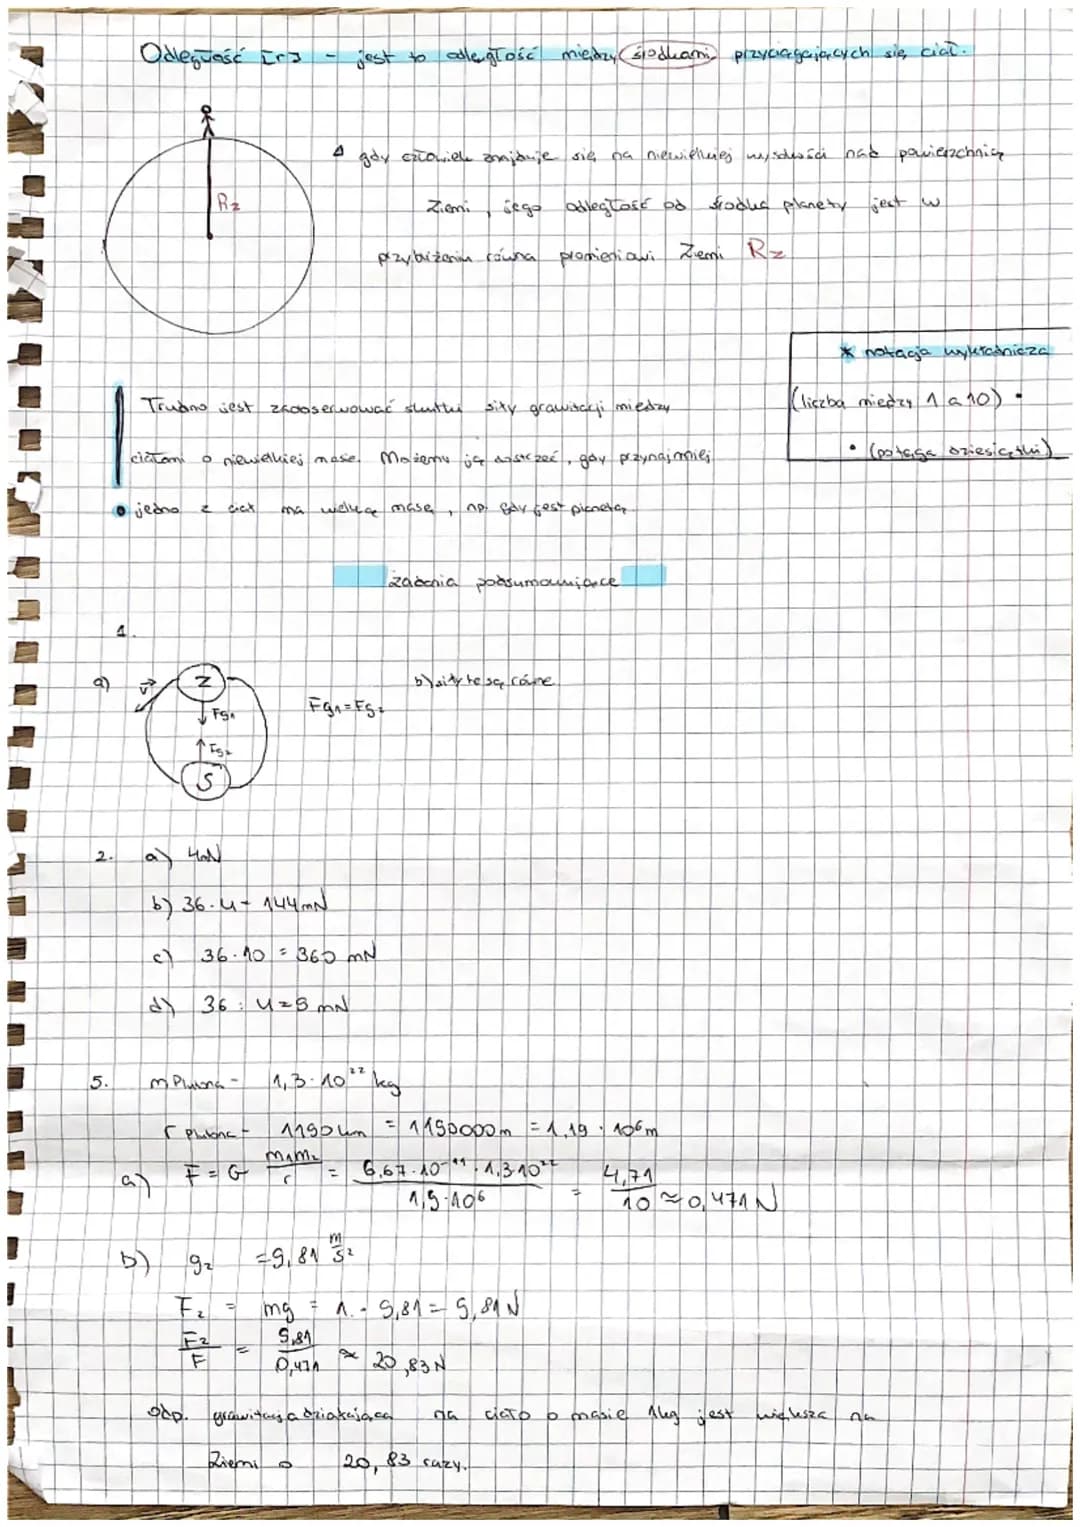 Odległość [r] - jest to odległość między środkami przyciągających się ciał.
Rz
gdy człowiek znajduje się na niewielkiej wysokości nad powierzchnią
Ziemi, jego odległość od środka planety jest w
przybliżeniu równa promieniowi Ziemi Rz
* notacja wykładnicza
(liczba między 1 a 10) •
• (potęga dziesiątki)
Trudno jest zaobserwować skutki siły grawitacji między
ciałami o niewielkiej masie. Możemy ją dostrzec, gdy przynajmniej
jedno z ciał ma wielką masę, np. gdy jest planetą
zadania podsumowujące
1.
a) v Z Fg1 Fg2 S
Fg1 = Fg2
b) siły te są równe
2. a) 4mN
b) 36 · 4 = 144 mN
c) 36 · 10 = 360 mN
d) 36 : 4 = 9 mN
5. m Plutona - 1,3 · 10²² kg
r Plutona - 1190 km = 1190000 m = 1,19 · 10⁶ m
a) F = G m₁m₂/r = 6,67 · 10⁻¹¹ · 1,3 · 10²²/1,9 · 10⁶ = 4,71/10 ≈ 0,471 N
b) gz = 9,81 m/s²
Fz = mg = 1 · 9,81 = 9,81 N
Fz/F = 9,81/0,471 ≈ 20,83 N
Odp. grawitacja działająca na ciało o masie 1kg jest większa na
Ziemi o 20,83 razy.